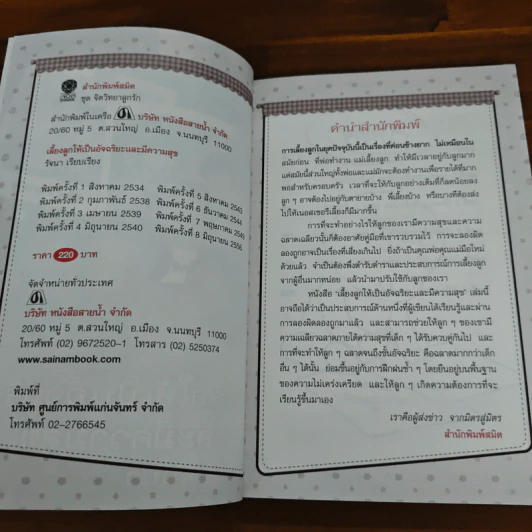 สำนักพิมพ์สมิต
ชุด จิตวิทยาลูกรัก
สำนักพิมพ์ในเครือ บริษัท หนังสือสายน้ำ จำกัด
20/60 หมู่ 5 ต.สวนใหญ่ อ.เมือง จ.นนทบุรี 11000
เลี้ยงลูกให้เป็นอัจฉริยะและมีความสุข
รัจนา เรียบเรียง
พิมพ์ครั้งที่ 1 สิงหาคม 2534 พิมพ์ครั้งที่ 5 สิงหาคม
พิมพ์ครั้งที่ 2 กุมภาพันธ์ 2538 พิมพ์ครั้งที่ 6 ธันวาคม
พิมพ์ครั้งที่ 3 เมษายน 2539 พิมพ์ครั้งที่ 7 พฤษภาคม
พิมพ์ครั้งที่ 4 มิถุนายน 2540 พิมพ์ครั้งที่ 8 มิถุนายน 2556
ราคา 220 บาท
จัดจำหน่ายทั่วประเทศ
บริษัท หนังสือสายน้ำ จำกัด
20/60 หมู่ 5 ต.สวนใหญ่ อ.เมือง จ.นนทบุรี 11000
โทรศัพท์ (02) 9672520–1 โทรสาร (02) 5250374
www.sainambook.com
พิมพ์ที่
บริษัท ศูนย์การพิมพ์แก่นจันทร์ จำกัด
โทรศัพท์ 02–2766545
คำนำสำนักพิมพ์
การเลี้ยงลูกในยุคปัจจุบันนี้เป็นเรื่องที่ค่อนข้างยาก ไม่เหมือนใน
สมัยก่อน ที่พ่อทำงาน แม่เลี้ยงลูก ทำให้มีเวลาอยู่กับลูกมาก
แต่สมัยนี้ส่วนใหญ่ทั้งพ่อและแม่มักจะต้องทำงานเพื่อรายได้ที่มาก
พอสำหรับครอบครัว เวลาที่จะให้กับลูกอย่างเต็มที่ก็ลดน้อยลง
ลูก ๆ อาจต้องไปอยู่กับตายายบ้าง พี่เลี้ยงบ้าง หรือบางทีต้องส่ง
ไปให้เนอสเซอรี่เลี้ยงก็มีมากขึ้น
การที่จะทำอย่างไรให้ลูกของเรามีความสุขและความ
ฉลาดเฉลียวนั้นก็ต้องอาศัยคู่มือที่เขารวบรวมไว้ การจะลองผิด
ลองถูกอาจเป็นเรื่องที่เสี่ยงเกินไป ยิ่งถ้าเป็นคุณพ่อคุณแม่มือใหม่
ด้วยแล้ว จำเป็นต้องพึ่งตำรับตำราและประสบการณ์การเลี้ยงลูก
จากผู้อื่นมากหน่อย แล้วนำมาปรับใช้กับลูกของเรา
หนังสือ "เลี้ยงลูกให้เป็นอัจฉริยะและมีความสุข" เล่มนี้
อาจถือได้ว่าเป็นประสบการณ์ด้านหนึ่งที่ผู้เขียนได้เรียนรู้และผ่าน
การลองผิดลองถูกมาแล้ว และสามารถช่วยให้ลูก ๆ ของเขามี
ความเฉลียวฉลาดภายใต้ความสุขที่เด็ก ๆ ได้รับควบคู่กันไป และ
การที่จะทำให้ลูก ๆ ฉลาดจนถึงขั้นอัจฉริยะ คือฉลาดมากกว่าเด็ก
อื่น ๆ ได้นั้น ย่อมขึ้นอยู่กับการฝึกฝนซ้ำ ๆ โดยยืนอยู่บนพื้นฐาน
ของความไม่เคร่งเครียด และให้ลูก ๆ เกิดความต้องการที่จะ
เรียนรู้ขึ้นมาเอง
เราคือผู้ส่งข่าว จากมิตรสู่มิตร
สำนักพิมพ์สมิต